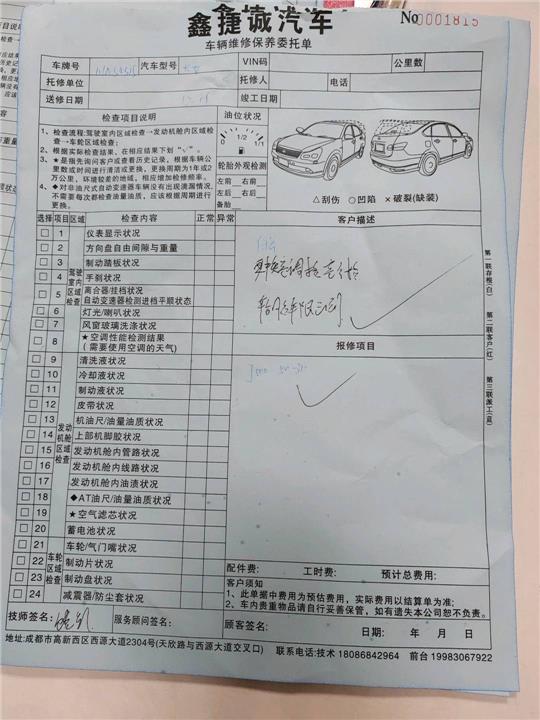 鑫捷诚汽车
No 0001815
车辆维修保养委托单
车牌号 汽车型号 VIN码 公里数
托修单位 托修人 电话
送修日期 竣工日期
检查项目说明
1、检查流程:驾驶室内区域检查→发动机舱内区域检查→车轮区域检查;
2、根据实际检查结果,在相应结果下划“√”。
3、★是指先询问客户或查看历史记录,根据车辆公里数或时间进行清洁或更换,更换周期为1年或2万公里,环境较差的地域,相应增加检修频率。
4、◆对非油尺式自动变速器车辆没有出现渗漏情况,不需要每次都检查油量油质,应该根据周期进行更换。
油位状况
0 1/2 1/1
轮胎外观检测
左前 右前
左后 右后
备胎
△刮伤 ○凹陷 ×破裂(缺装)
选择 项目 区域 检查内容 正常 异常
驾驶室内区域检查
□ 1 仪表显示状况
□ 2 方向盘自由间隙与重量
□ 3 制动踏板状况
□ 4 手刹状况
□ 5 离合器/挂档状况
自动变速器检测进档平顺状态
□ 6 灯光/喇叭状况
□ 7 风窗玻璃洗涤状况
□ 8 ★空调性能检测结果
(需要使用空调的天气)
发动机舱区域检查
□ 9 清洗液状况
□ 10 冷却液状况
□ 11 制动液状况
□ 12 皮带状况
□ 13 机油尺/油量油质状况
□ 14 上部机脚胶状况
□ 15 发动机舱内管路状况
□ 16 发动机舱内线路状况
□ 17 发动机舱内油渍状况
□ 18 ◆AT油尺/油量油质状况
□ 19 ★空气滤芯状况
□ 20 蓄电池状况
车轮区域检查
□ 21 车轮/气门嘴状况
□ 22 制动片状况
□ 23 制动盘状况
□ 24 减震器/防尘套状况
客户描述
报修项目
第一联存根(白) 第二联客户(红) 第三联派工(蓝)
配件费: 工时费: 预计总费用:
客户须知
1、此单据中费用为预估费用,实际费用以结算单为准;
2、车内贵重物品请自行妥善保管,如有遗失本公司恕不负责。
技师签名: 服务顾问签名: 顾客签名: 日期: 年 月 日
地址:成都市高新西区西源大道2304号(天欣路与西源大道交叉口) 联系电话:技术 18086842964 前台 19983067922